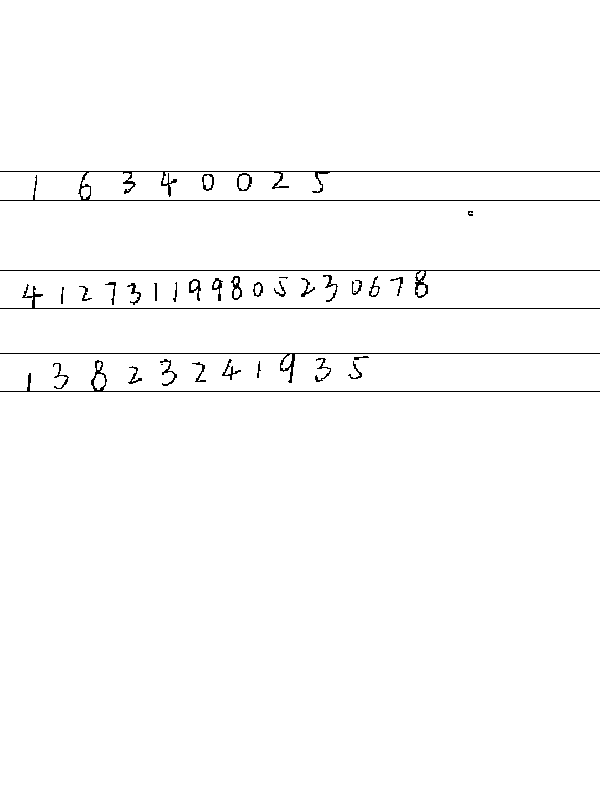 16340025
412731199805230678
13823241935